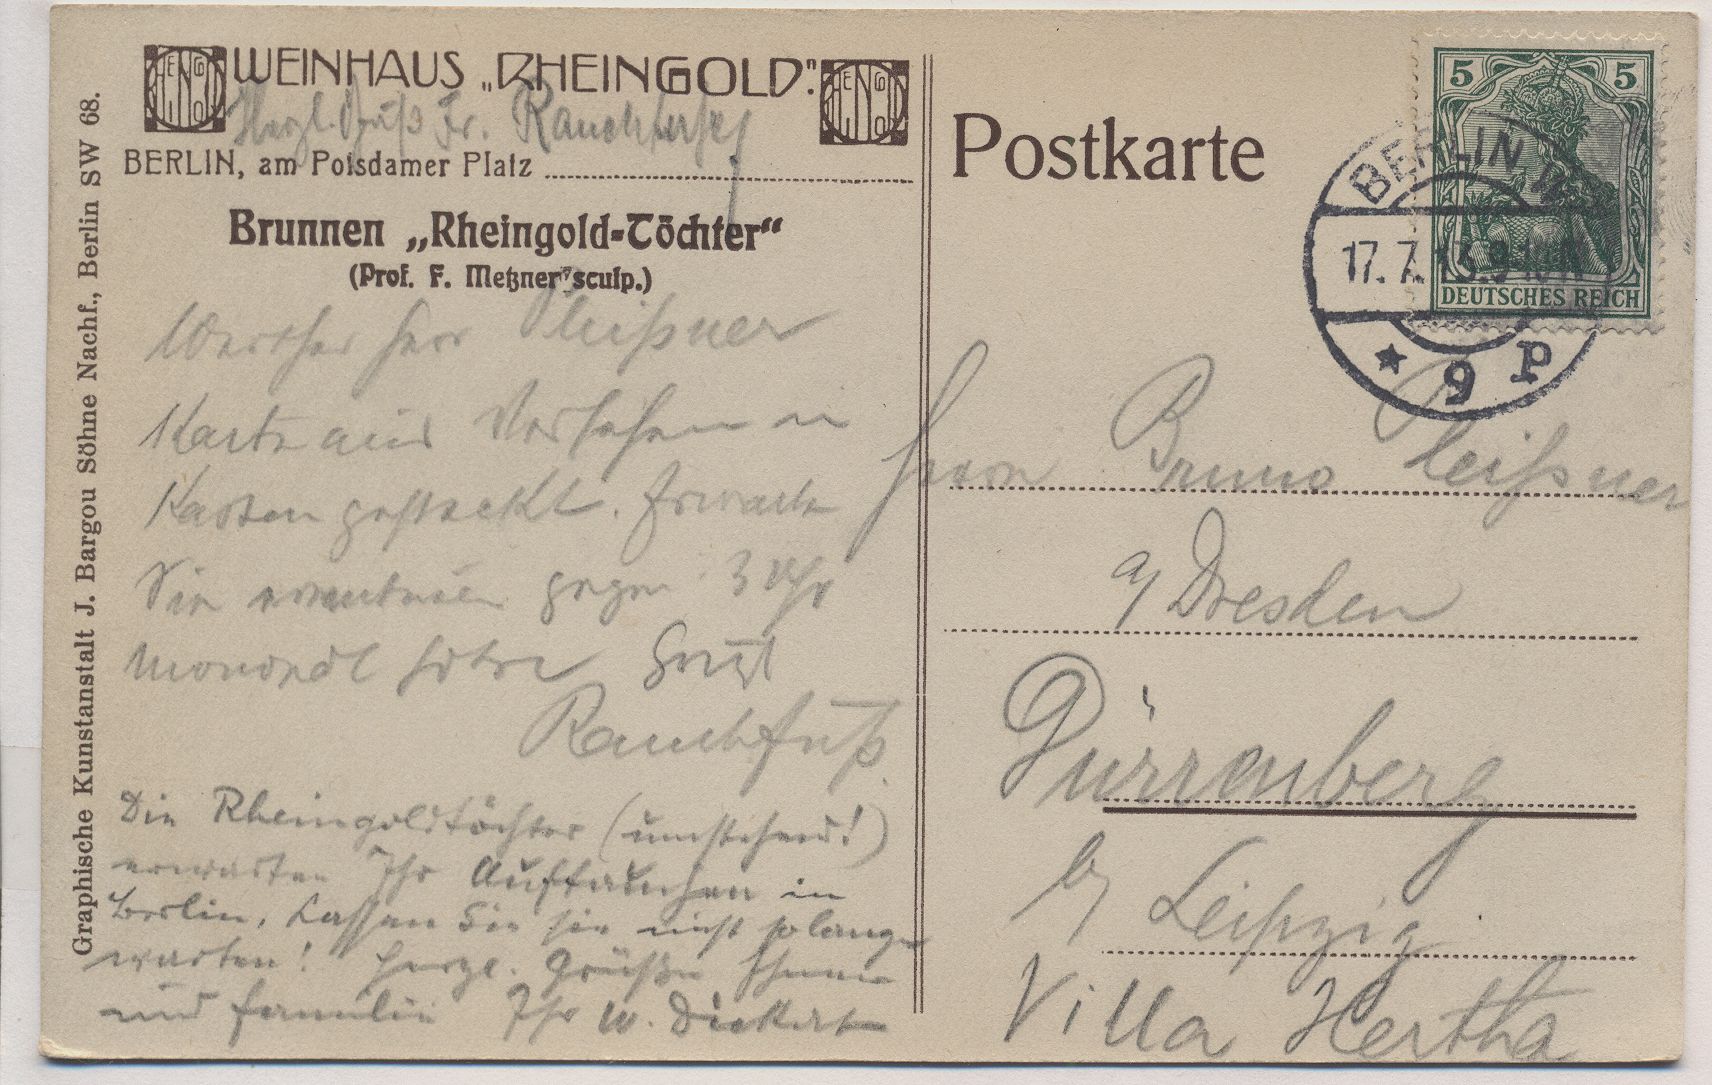 WEINHAUS „RHEINGOLD".
Herzl. Gruß Fr.
BERLIN, am Potsdamer Platz
Brunnen „Rheingold-Töchter“
(Prof. F. Metzner sculp.)
Graphische Kunstanstalt J. Bargou Söhne Nachf., Berlin SW 68.
Werther Herr Pleißner
Karte aus Versehen in
Kasten gesteckt. Erwarte
Sie eventuell gegen 3 Uhr
Gruß
Rauchfuß.
Die Rheingoldtöchter (umstehend!)
erwarten Ihr Auftauchen in
Berlin. Lassen Sie sie nicht so lange
warten! Herzl. Grüße Ihnen
und Familie Ihr W. Dieckert
Postkarte
5 5
DEUTSCHES REICH
BERLIN W
17.7.13.9-10 N
* 9 P
Herrn Bruno Pleißner
a/ Dresden
Dürrenberg
b/ Leipzig
Villa Hertha